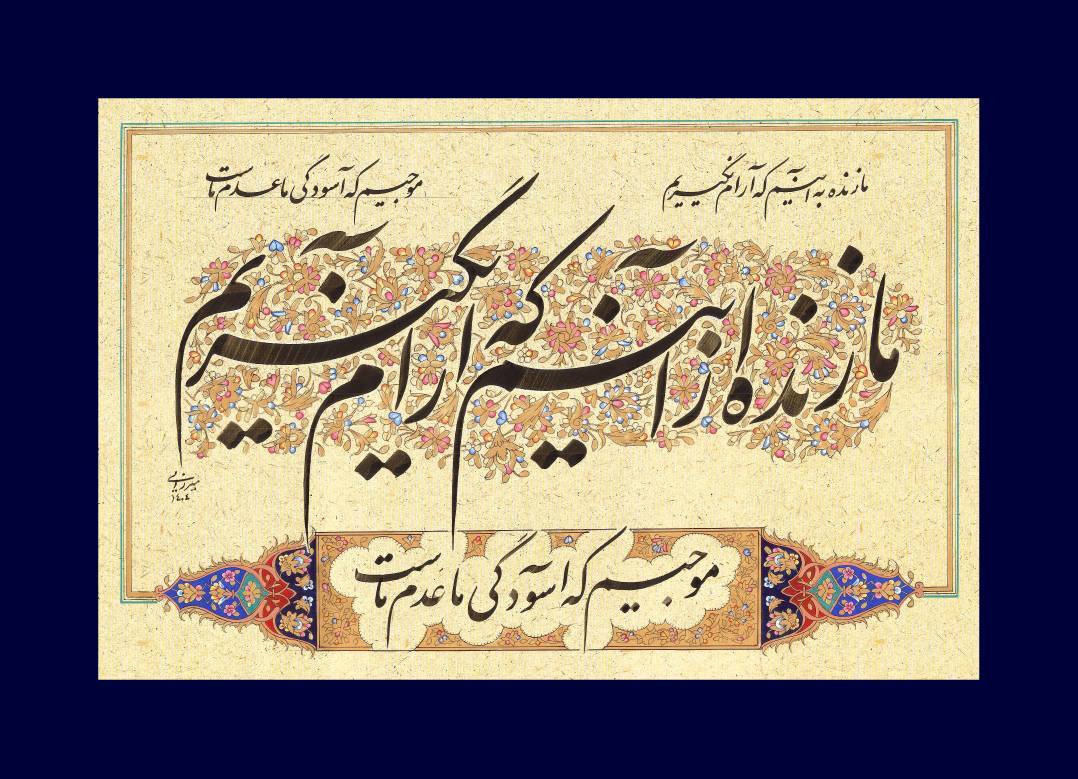 ما زنده به آنیم که آرام نگیریم
موجیم که آسودگی ما عدم ماست
ما زنده از آنیم که آرام نگیریم
۱۴۰۴
موجیم که آسودگی ما عدم ماست